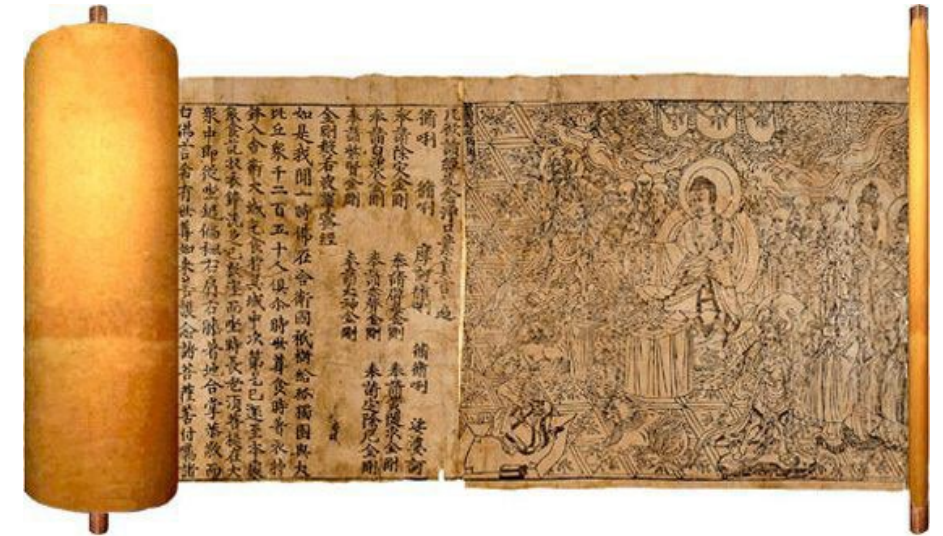 凡欲讀經先念淨口業真言一遍
脩唎 脩唎 摩訶脩唎 脩脩唎 娑婆訶
奉請除灾金剛 奉請辟毒金剛 奉請黃随求金剛
奉請白淨水金剛 奉請赤聲金剛 奉請定除厄金剛
奉請紫賢金剛 奉請大神金剛
金剛般若波羅蜜經
如是我聞一時佛在舍衛國祇樹給孤獨園與大
比丘眾千二百五十人俱尒時世尊食時著衣持
鉢入舍衛大城乞食於其城中次第乞已還至本處
飯食訖收衣鉢洗足已敷座而坐時長老須菩提在大
眾中即從坐起偏袒右肩右膝著地合掌恭敬而
白佛言希有世尊如來善護念諸菩薩善付囑諸